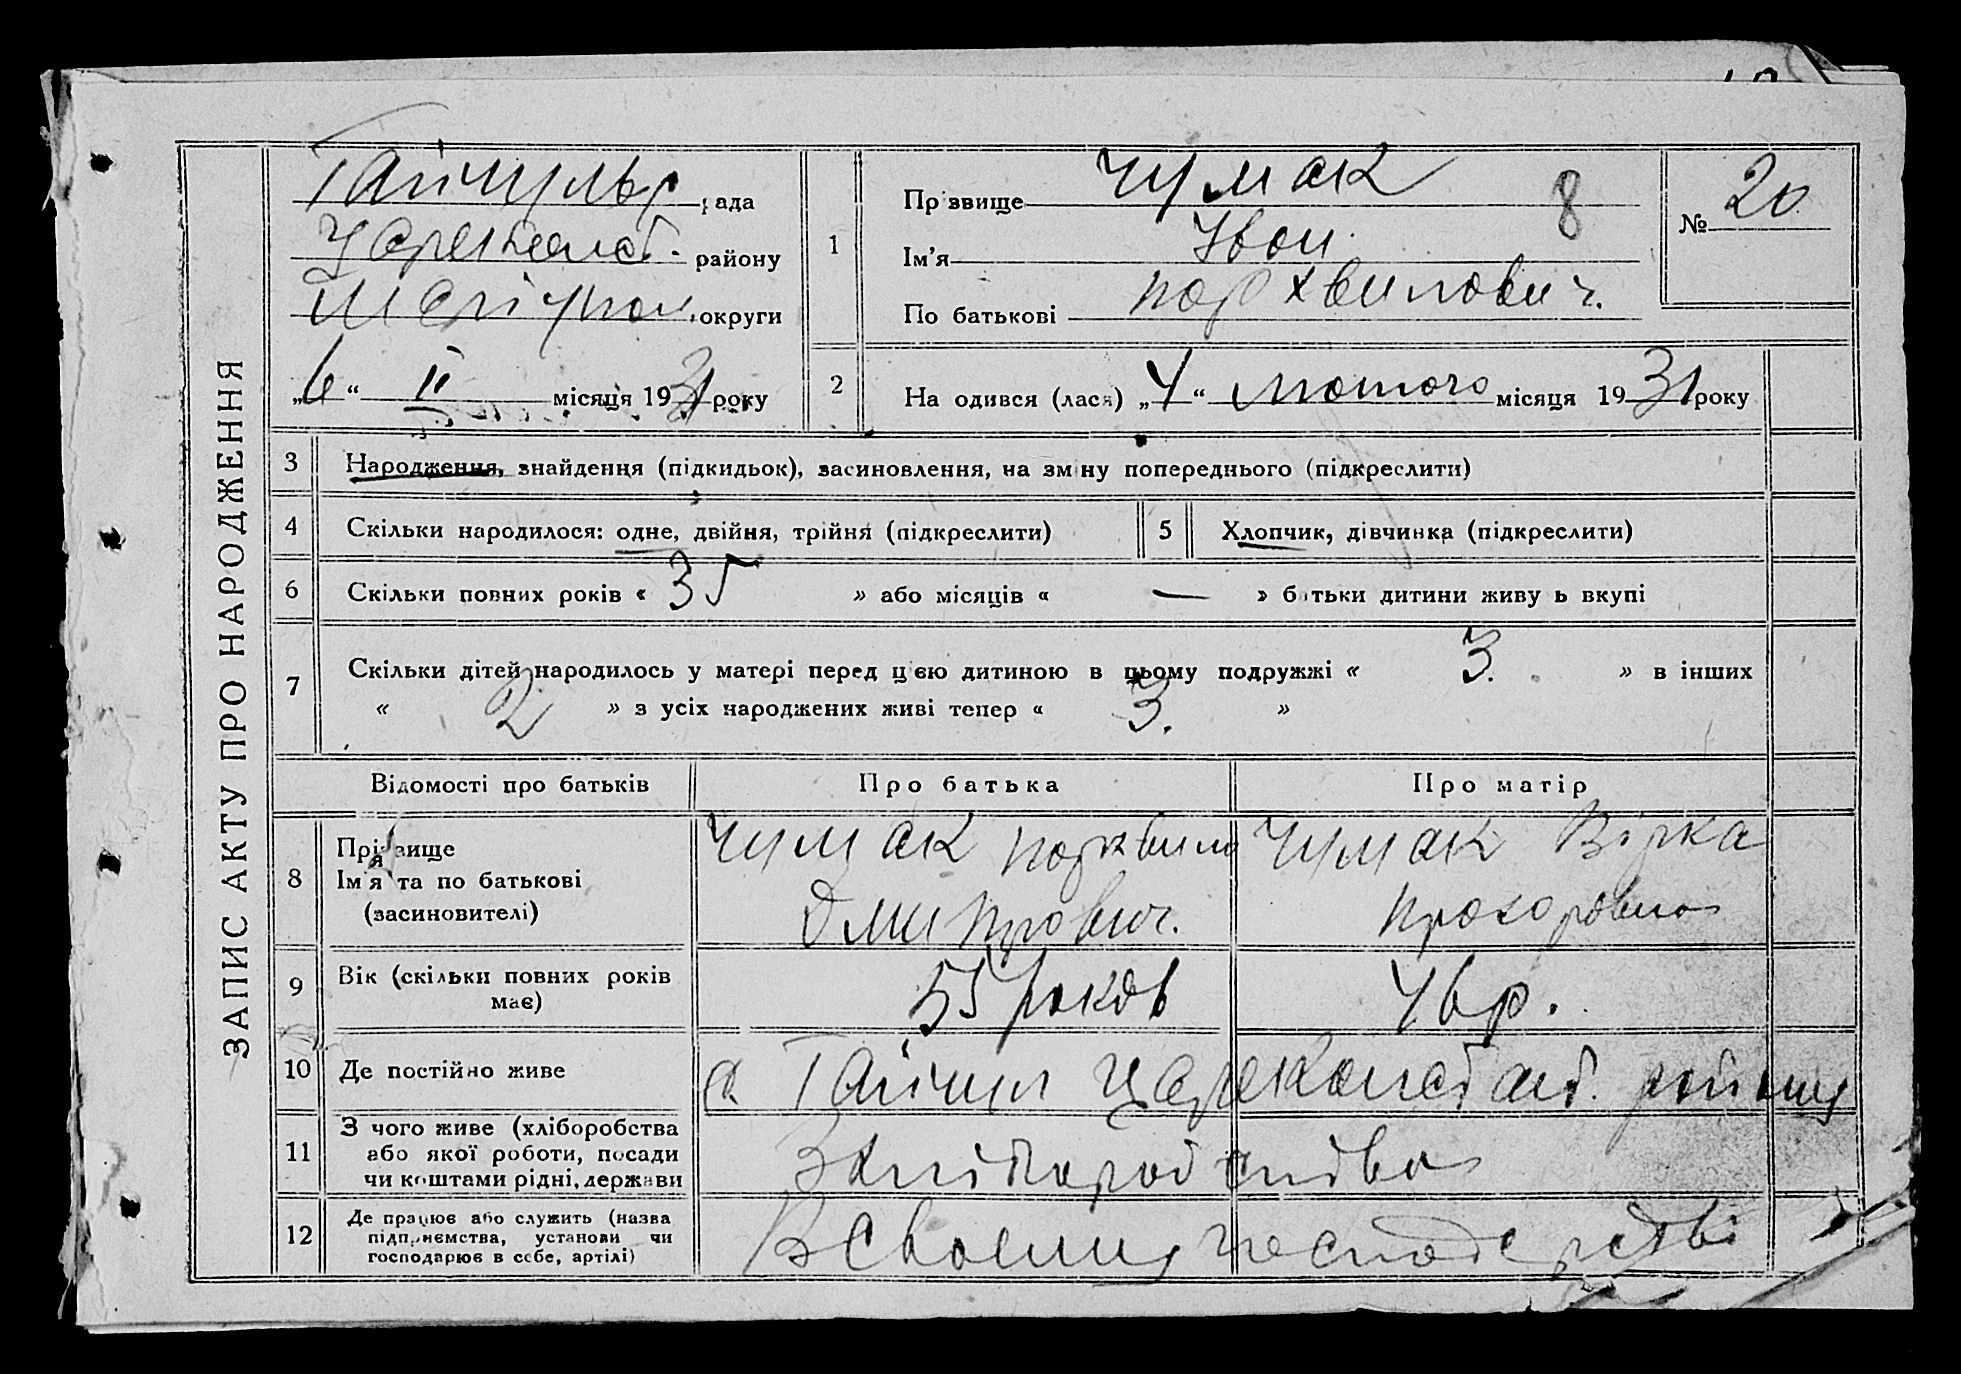 ЗАПИС АКТУ ПРО НАРОДЖЕННЯ
Гайчульр рада
Цареконст. району
Маріупол. округи
„6“ II місяця 1931 року
1
Прізвище Чумак 8
Ім'я Іван
По батькові Пархвилович.
№ 20
2
На одився (лася) „4“ лютого місяця 1931 року
3 Народження, знайдення (підкидьок), засиновлення, на зміну попереднього (підкреслити)
4 Скільки народилося: одне, двійня, трійня (підкреслити)
5 Хлопчик, дівчинка (підкреслити)
6 Скільки повних років « 35 » або місяців « — » батьки дитини живуть вкупі
7 Скільки дітей народилось у матері перед цією дитиною в цьому подружжі « 3. » в інших
« 2 » з усіх народжених живі тепер « 3. »
Відомості про батьків Про батька Про матір
8 Прізвище
Ім'я та по батькові
(засиновителі)
Чумак Пархвило
Дмитрович.
Чумак Вірка
Прохоровна
9 Вік (скільки повних років
має)
55 років
46 р.
10 Де постійно живе
с. Гайчул Царекопстант. району
11 З чого живе (хліборобства
або якої роботи, посади
чи коштами рідні, держави
З хліборобства
12 Де працює або служить (назва
підприємства, установи чи
господарює в себе, артілі)
В своему господарстві